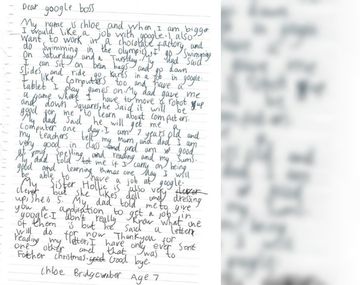 Dear google boss
My name is chloe and when I am bigger
I would like a job with google. I also
want to work in a chocolate factory and
do swimming in the olympics. I go swimming
on Saturday and a Tuesday. My dad said
I can sit on bean bags and go down
slides and ride go karts in a job in google.
I like computers too and have a
tablet I play games on. My dad gave me
a game where I have to move a robot up
and down squares he said it will be
good for me to learn about computers.
My dad said he will get me a
computer one day. I am 7 years old and
my teachers tell my mum and dad I am
very good in class and am good
at my spelling and reading and my sums.
My dad told me if I carry on being
good and learning then one day I will
be able to have a job at google.
My sister Hollie is also very
clever but she likes dolls and dressing
up she is 5. My dad told me to give
you a application to get a job in
google I don't really know what one
of them is but he said a letter
will do for now. Thankyou for
reading my letter I have only ever sent
one other and that was to
Father christmas. good bye
Chloe Bridgewater Age 7